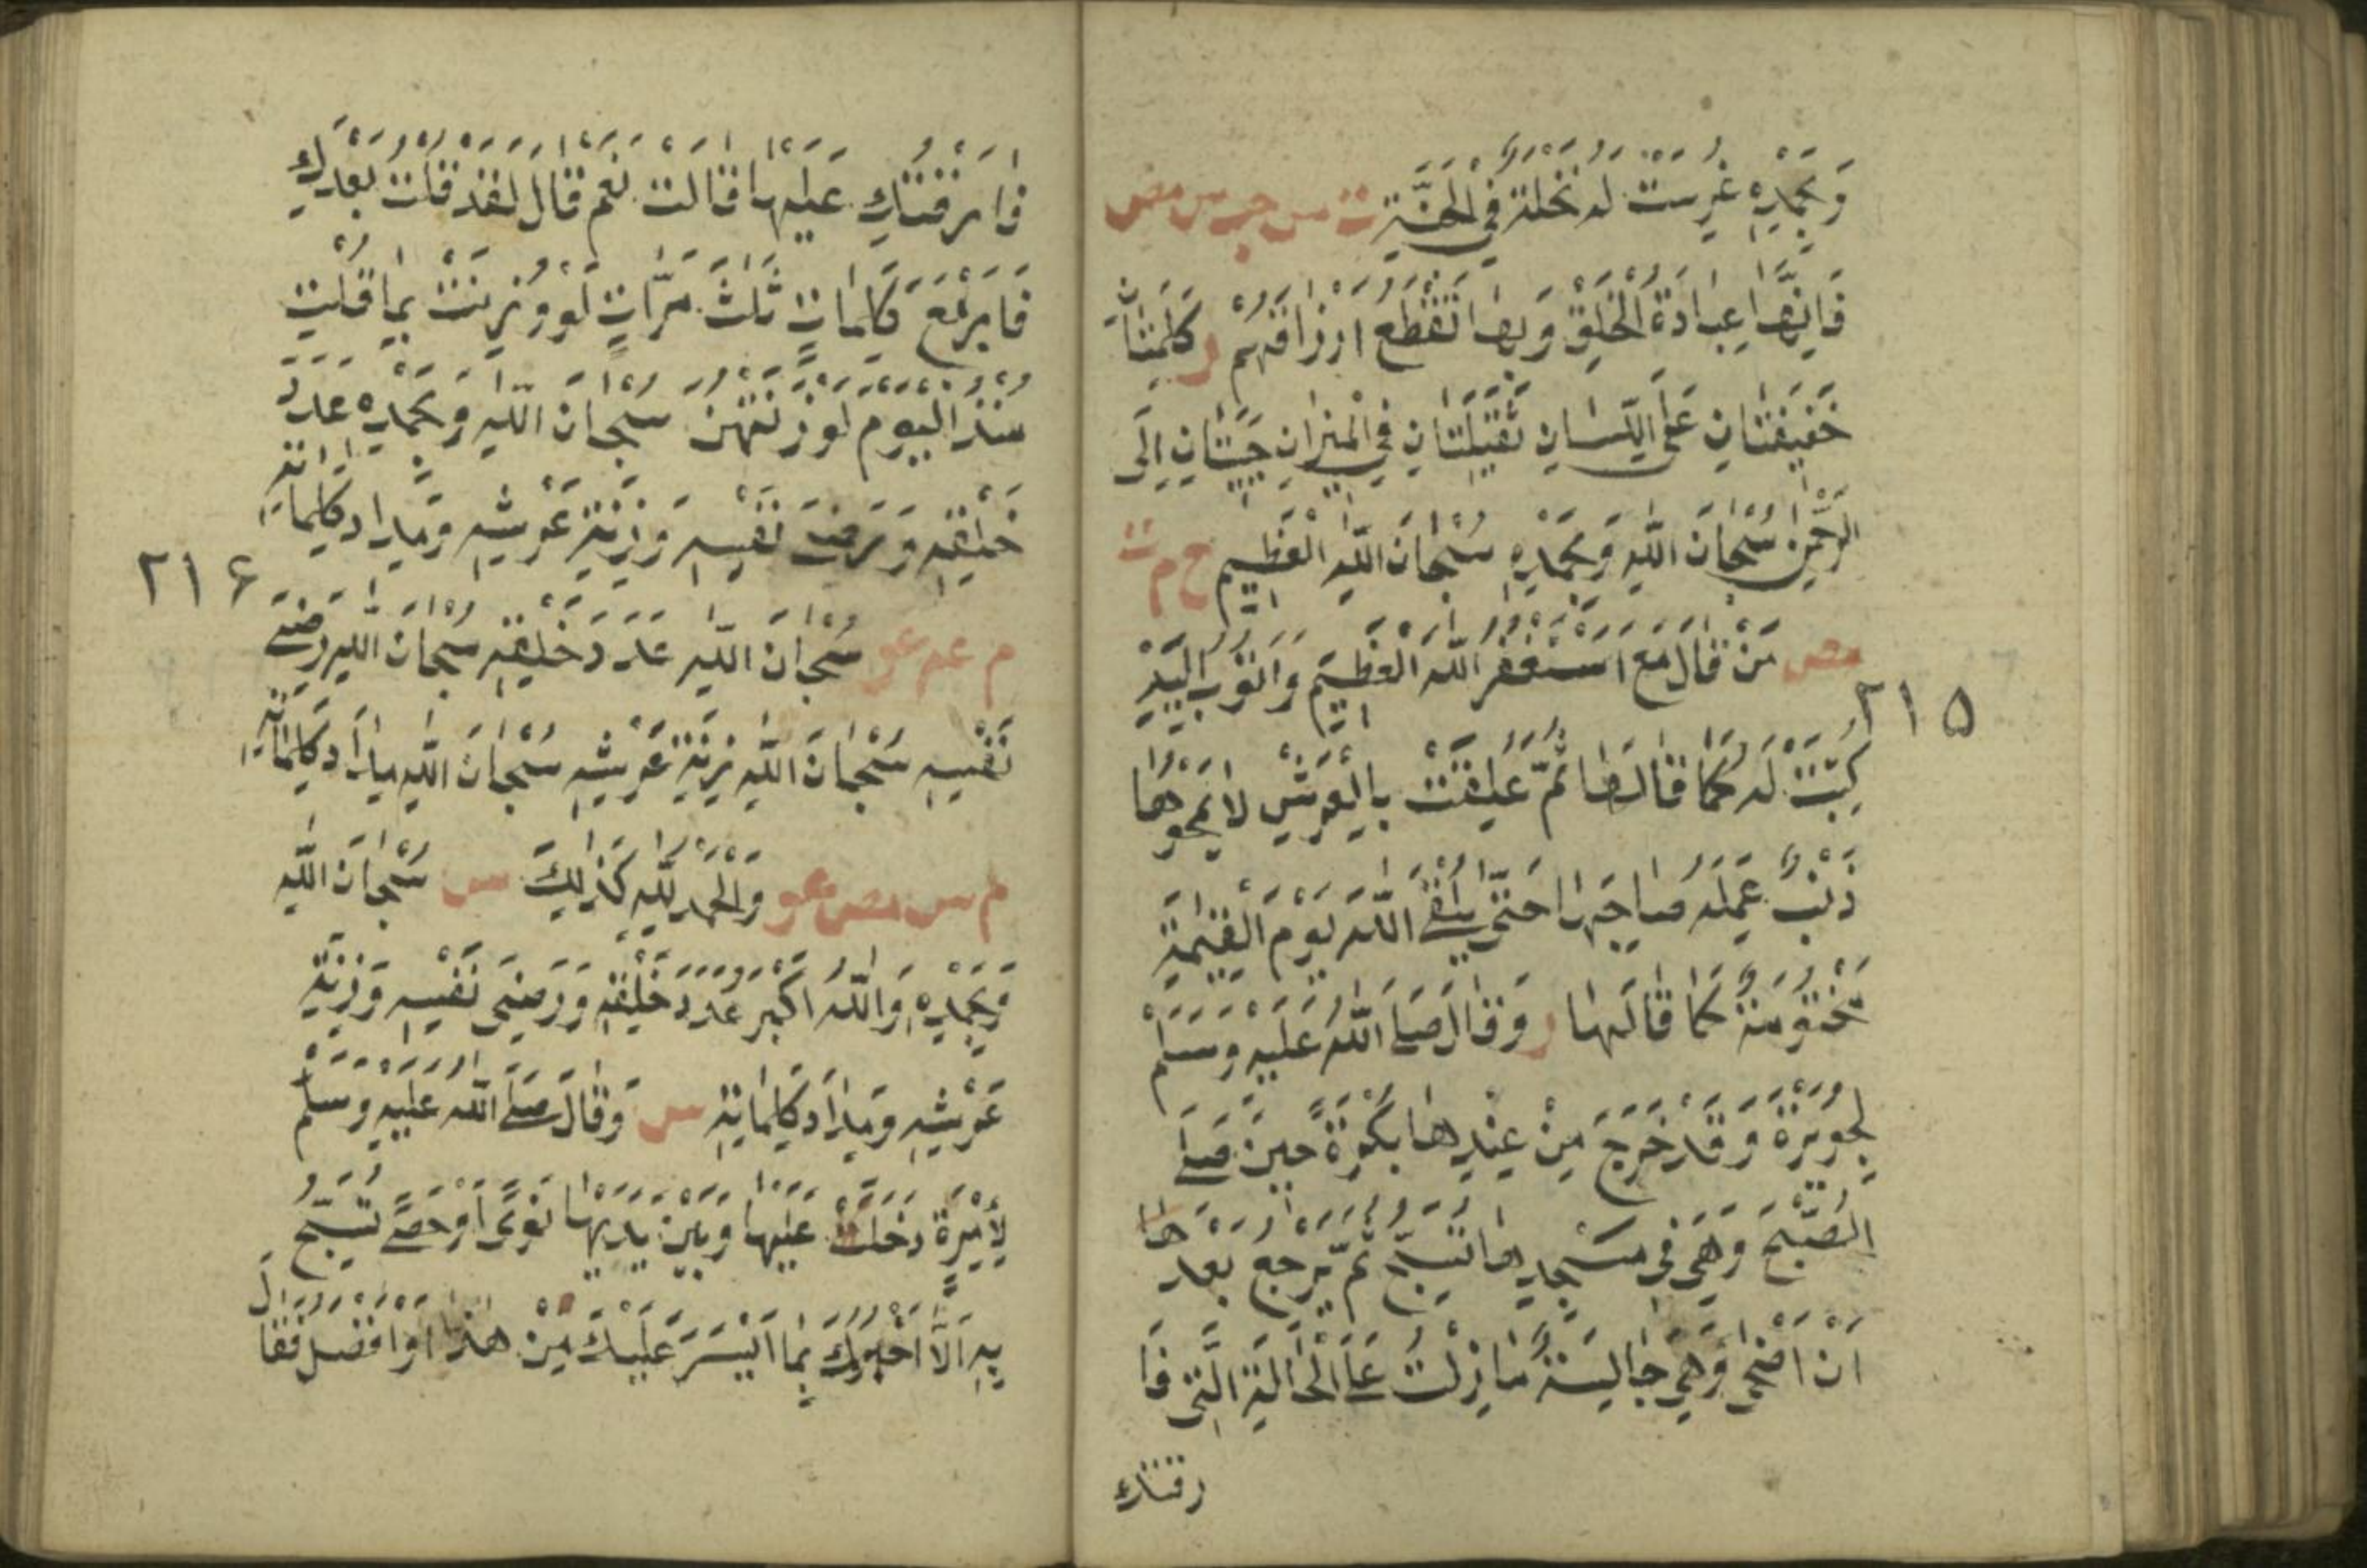 وَبِحَمْدِهٖ غُرِسَتْ لَهُ نَخْلَةٌ فِي الْجَنَّةِ ت س حب مس مص
فَاِنَّهَا عِبَادَةُ الْخَلْقِ وَبِهَا تُقْطَعُ اَرْزَاقُهُمْ ر كَلِمَتَانِ
خَفِيفَتَانِ عَلَى اللِّسَانِ ثَقِيلَتَانِ فِي الْمِيزَانِ حَبِيبَتَانِ اِلَى
الرَّحْمٰنِ سُبْحَانَ اللّٰهِ وَبِحَمْدِهٖ سُبْحَانَ اللّٰهِ الْعَظِيمِ خ م ت
مص مَنْ قَالَ مَعَ اَسْتَغْفِرُ اللّٰهَ الْعَظِيمَ وَاَتُوبُ اِلَيْهِ
٢١٥
كُتِبَتْ لَهُ كَمَا قَالَهَا ثُمَّ عُلِّقَتْ بِالْعَرْشِ لَا يَمْحُوهَا
ذَنْبٌ عَمِلَهُ صَاحِبُهَا حَتّٰى يَلْقَى اللّٰهَ يَوْمَ الْقِيٰمَةِ
مَخْتُومَةٌ كَمَا قَالَهَا ر وَقَالَ صَلَّى اللّٰهُ عَلَيْهِ وَسَلَّمَ
لِجُوَيْرِيَةَ وَقَدْ خَرَجَ مِنْ عِنْدِهَا بُكْرَةً حِينَ صَلَّى
الصُّبْحَ وَهِيَ فِي مَسْجِدِهَا تُسَبِّحُ ثُمَّ يَرْجِعُ بَعْدَ مَا
اَنْ اَضْحٰى وَهِيَ جَالِسَةٌ مَا زِلْتِ عَلَى الْحَالَةِ الَّتِي فَا
رقتك
فَارَقْتُكِ عَلَيْهَا قَالَتْ نَعَمْ قَالَ لَقَدْ قُلْتُ بَعْدَكِ
فَارْبَعَ كَلِمَاتٍ ثَلٰثَ مَرَّاتٍ لَوْ وُزِنَتْ بِمَا قُلْتِ
مُنْذُ الْيَوْمِ لَوَزَنَتْهُنَّ سُبْحَانَ اللّٰهِ وَبِحَمْدِهٖ عَدَدَ
خَلْقِهٖ وَرِضَى نَفْسِهٖ وَزِنَةَ عَرْشِهٖ وَمِدَادَ كَلِمَاتِهٖ
٢١٦
م عه عو سُبْحَانَ اللّٰهِ عَدَدَ خَلْقِهٖ سُبْحَانَ اللّٰهِ رِضَى
نَفْسِهٖ سُبْحَانَ اللّٰهِ زِنَةَ عَرْشِهٖ سُبْحَانَ اللّٰهِ مِدَادَ كَلِمَاتِهٖ
م س مص عو وَالْحَمْدُ لِلّٰهِ كَذٰلِكَ س سُبْحَانَ اللّٰهِ
وَبِحَمْدِهٖ وَاللّٰهُ اَكْبَرُ عَدَدَ خَلْقِهٖ وَرِضَى نَفْسِهٖ وَزِنَةَ
عَرْشِهٖ وَمِدَادَ كَلِمَاتِهٖ س وَقَالَ صَلَّى اللّٰهُ عَلَيْهِ وَسَلَّمَ
لِاِمْرَأَةٍ دَخَلَ عَلَيْهَا وَبَيْنَ يَدَيْهَا نَوًى اَوْ حَصًى تُسَبِّحُ
بِهٖ اَلَا اُخْبِرُكِ بِمَا اَيْسَرَ عَلَيْكِ مِنْ هٰذَا اَوْ اَفْضَلُ فَقَالَ